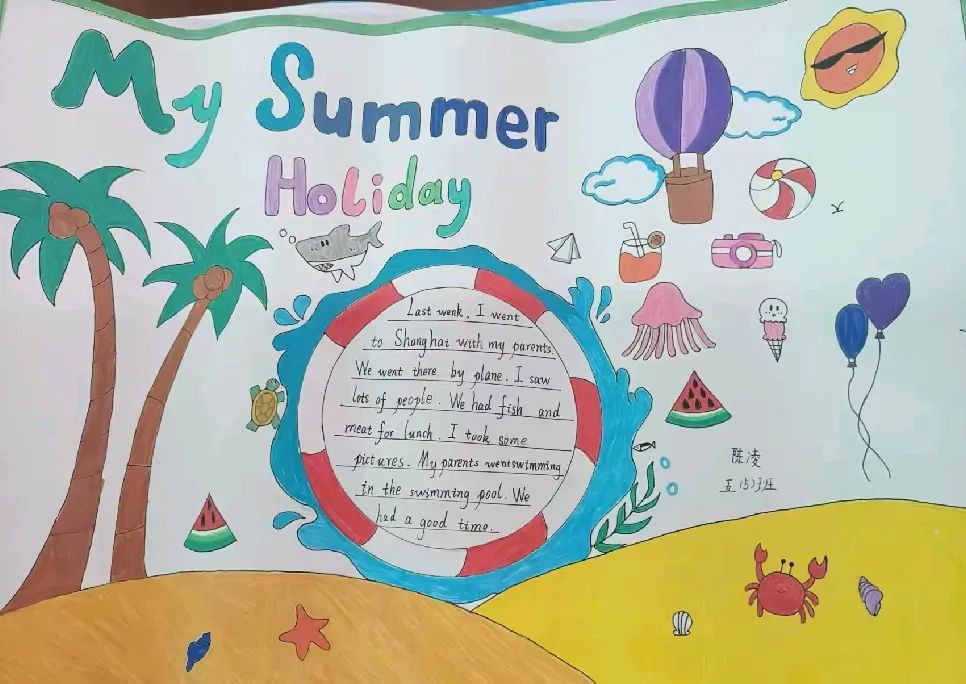 My Summer
Holiday
Last wenk, I went
to Shanghai with my parents.
We went there by plane. I saw
lots of people. We had fish and
meat for lunch. I took some
pictures. My parents wentswimming
in the swimming pool. We
had a good time.
陈凌
五(5)班